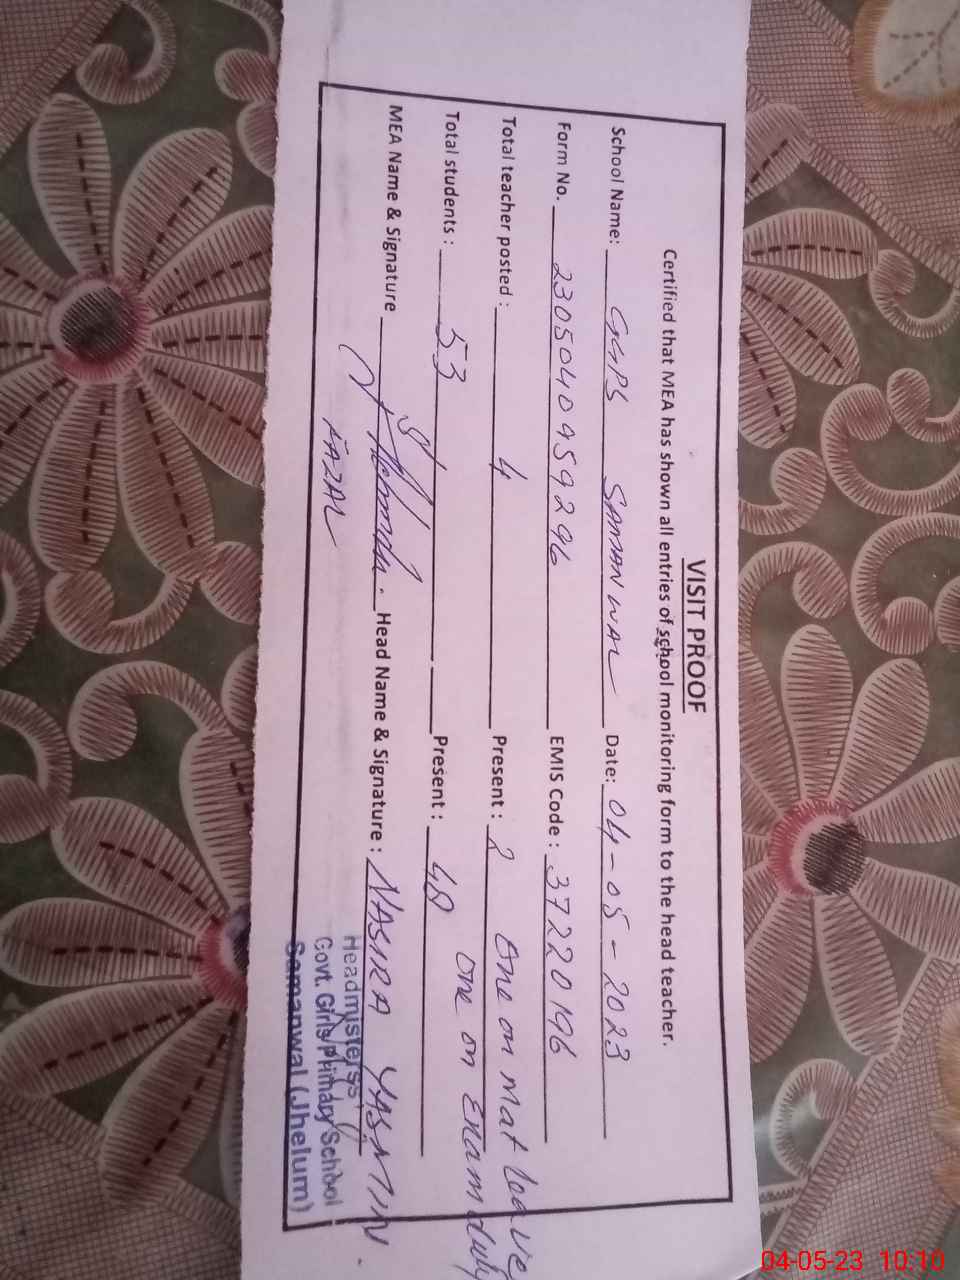 VISIT PROOF
Certified that MEA has shown all entries of school monitoring form to the head teacher.
School Name: GGPS SAMANWAL Date: 04-05-2023
Form No. 2305040959296 EMIS Code: 37220196
Total teacher posted: 4 Present: 2 One on mat leave
One on Exam duty
Total students: 53 Present: 48
MEA Name & Signature Head Name & Signature: NASIRA YASMIN.
FAZAL
Headmisterss
Govt. Girls Primary School
Samanwal (Jhelum)
04-05-23 10:10